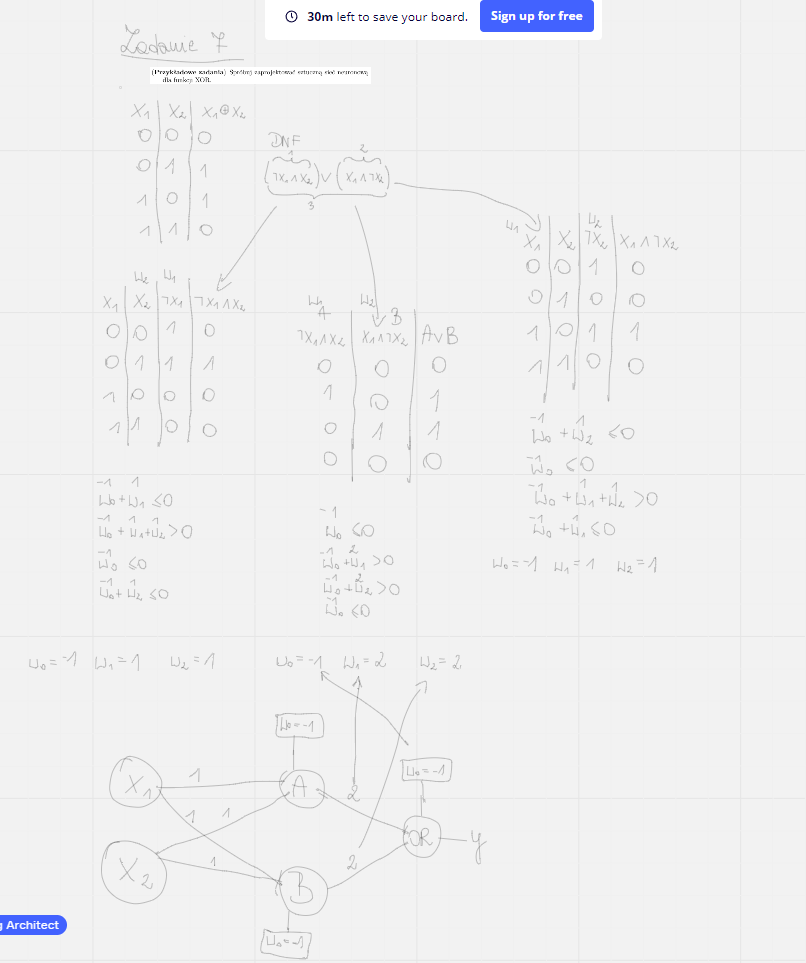 30m left to save your board.
Sign up for free
Zadanie 7
(Przykładowe zadania) Spróbuj zaprojektować sztuczną sieć neuronową
dla funkcji XOR.
X₁ X₂ X₁⊕X₂
0 0 0
0 1 1
1 0 1
1 1 0
DNF
1 2
(¬X₁∧X₂)∨(X₁∧¬X₂)
3
W₂ W₁
X₁ X₂ ¬X₁ ¬X₁∧X₂
0 0 1 0
0 1 1 1
1 0 0 0
1 1 0 0
-1 1
W₀+W₁ ≤0
-1 1 1
W₀+W₁+W₂>0
-1
W₀ ≤0
-1 1
W₀+W₂ ≤0
W₀=-1 W₁=1 W₂=1
W₁ W₂
A B
¬X₁∧X₂ X₁∧¬X₂ A∨B
0 0 0
1 0 1
0 1 1
0 0 0
-1
W₀ ≤0
-1 2
W₀+W₁ >0
-1 2
W₀+W₂ >0
-1
W₀ ≤0
W₀=-1 W₁=2 W₂=2
W₁ W₂
X₁ X₂ ¬X₂ X₁∧¬X₂
0 0 1 0
0 1 0 0
1 0 1 1
1 1 0 0
-1 1
W₀+W₂ ≤0
-1
W₀ ≤0
-1 1 1
W₀+W₁+W₂ >0
-1 1
W₀+W₁ ≤0
W₀=-1 W₁=1 W₂=1
W₀=-1
X₁ 1 A 2
W₀=-1
1 1
OR y
X₂ 1 B 2
W₀=-1
g Architect